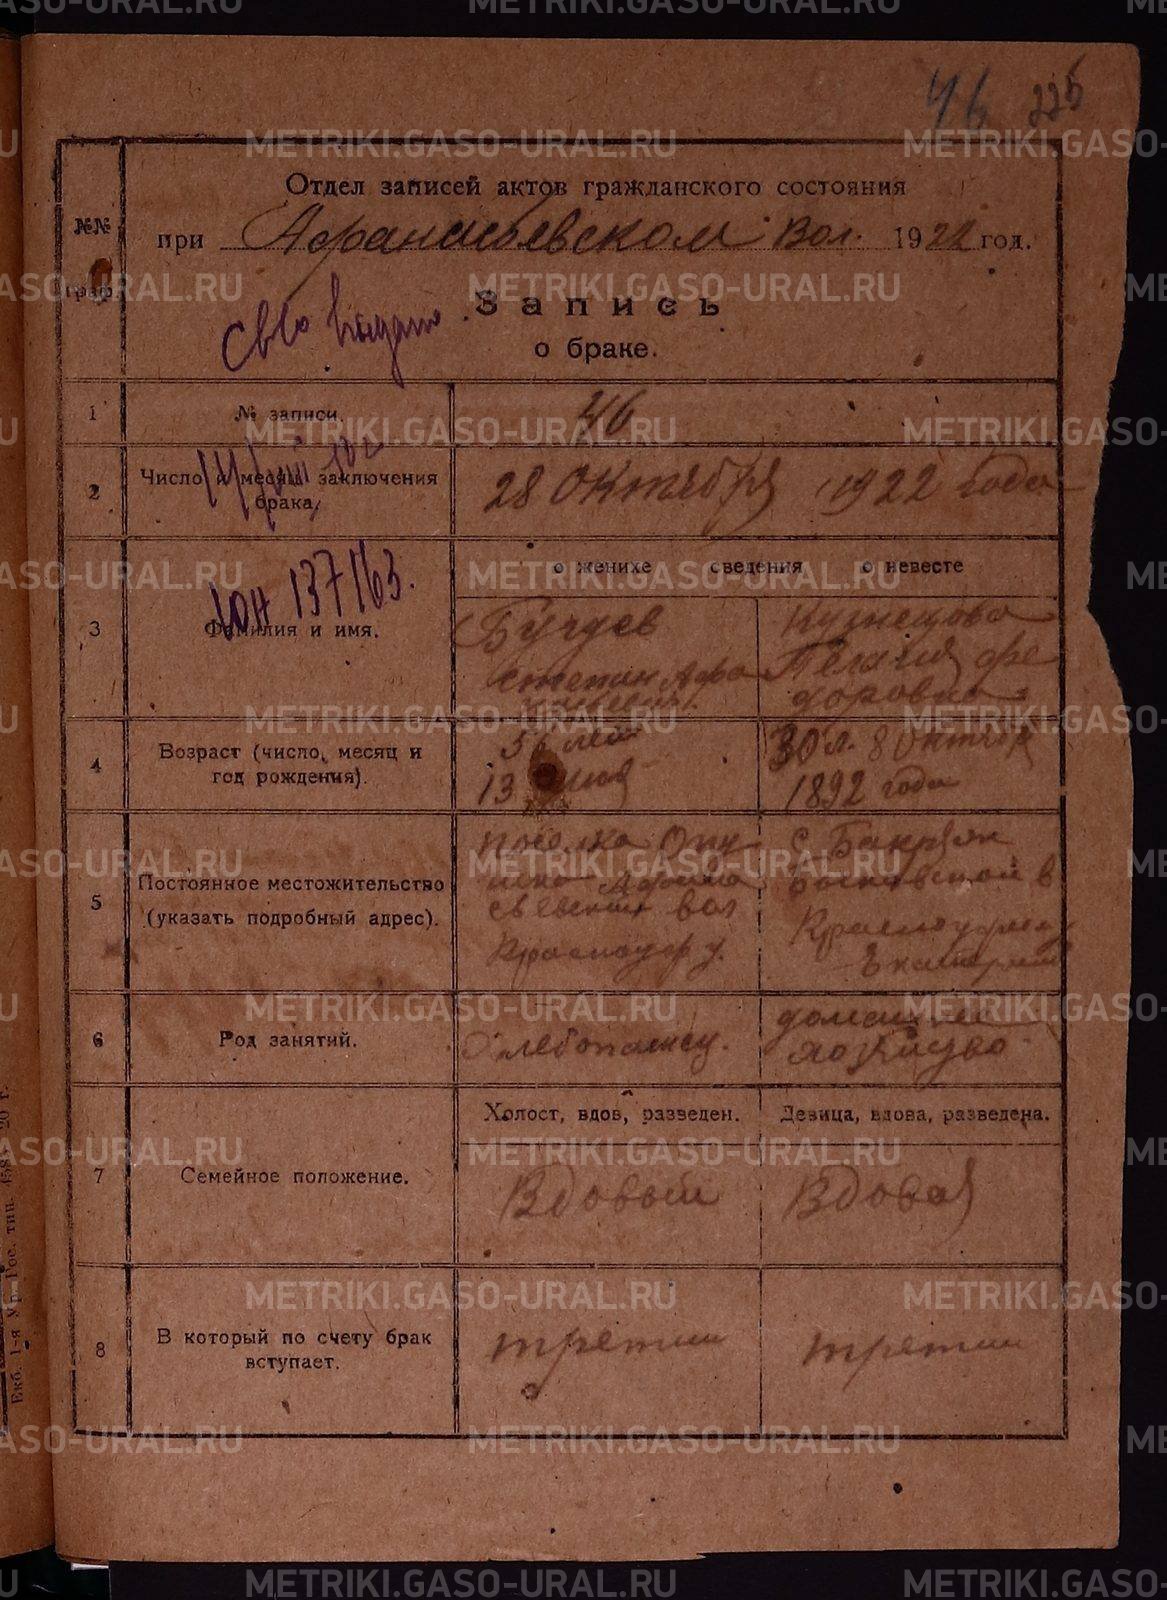 46 225
Отдел записей актов гражданского состояния
№№
граф.
при Афанасьевском вол. 1922 год.
Запись
св-во выдано
о браке.
1 № записи. 46
2 Число и месяц заключения
брака, 28 Октября 1922 года
о женихе сведения о невесте
ЮН 137163.
3 Фамилия и имя.
Кузнецова
Степан Афа Пелагия Фе
насьевич. доровна
4 Возраст (число, месяц и
год рождения).
56 лет 30 л. 8 Октября
13 1892 года
5 Постоянное местожительство
(указать подробный адрес).
поселка с. Бакряж
вол
Красноуф у. Красноуфим у
Екатерин
6 Род занятий. Хлебопашец. домашнее
хозяйство
Холост, вдов, разведен. Девица, вдова, разведена.
7 Семейное положение. Вдовый Вдовая
8 В который по счету брак
вступает. третий третий
Екб. 1-я Ур. Гос. тип. 458- 20 г.
METRIKI.GASO-URAL.RU